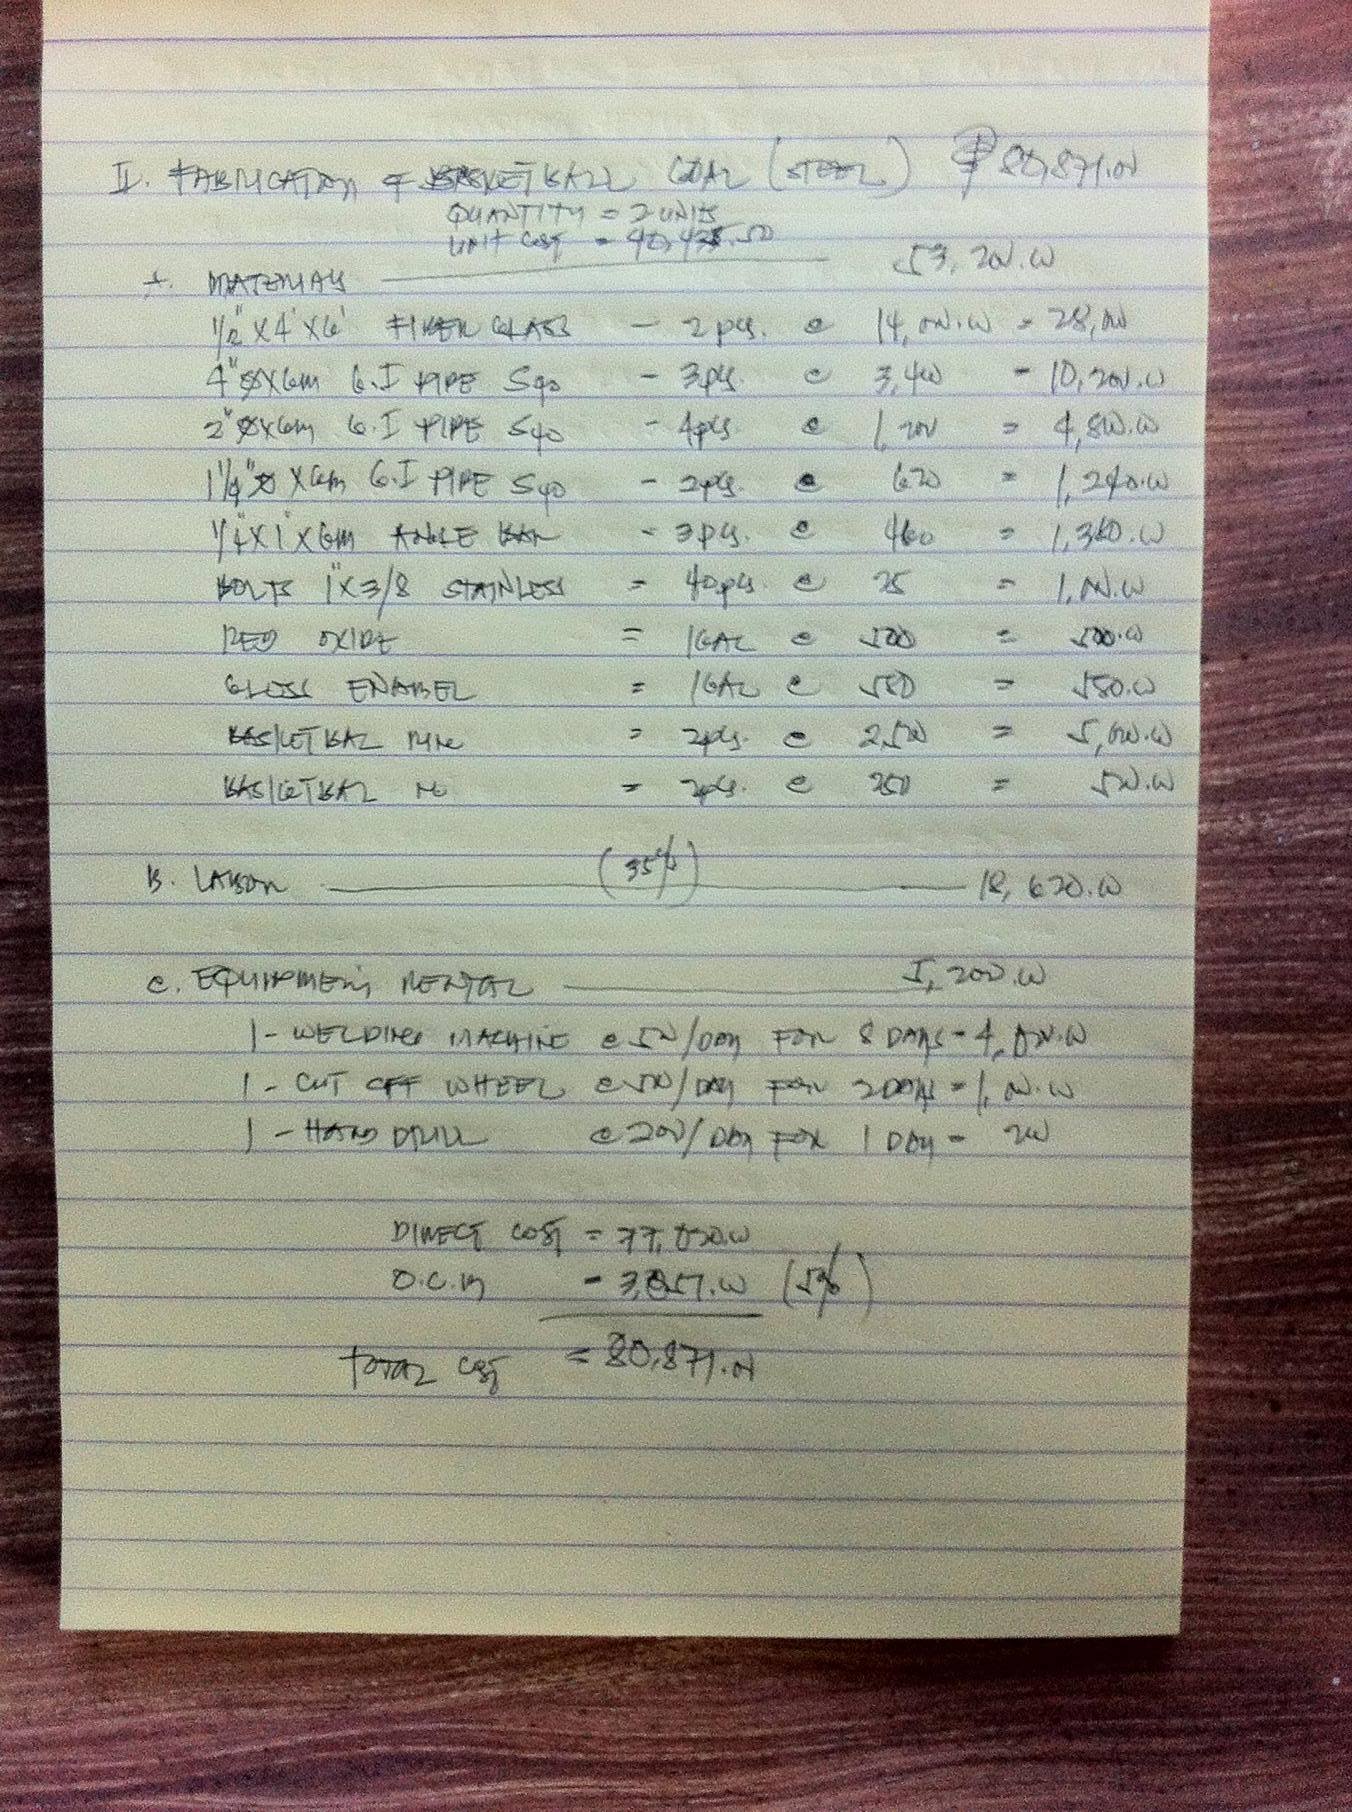 II. FABRICATION OF BASKETBALL GOAL (STEEL) ₱80,871.00
QUANTITY = 2 UNITS
UNIT COST = 40,435.50
A. MATERIALS 53,200.00
1/2" X 4' X 6' FIBER GLASS - 2 pcs. @ 14,000.00 = 28,000
4"ø X 6m G.I PIPE S40 - 3 pcs. @ 3,400 = 10,200.00
2"ø X 6m G.I PIPE S40 - 4 pcs. @ 1,200 = 4,800.00
1 1/4"ø X 6m G.I PIPE S40 - 2 pcs. @ 620 = 1,240.00
1/4" X 1" X 6m ANGLE BAR - 3 pcs. @ 460 = 1,380.00
BOLTS 1" X 3/8 STAINLESS = 40 pcs. @ 25 = 1,000.00
RED OXIDE = 1 GAL @ 500 = 500.00
GLOSS ENAMEL = 1 GAL @ 580 = 580.00
BASKETBAL RING = 2 pcs. @ 2,500 = 5,000.00
BASKETBAL = 2 pcs. @ 250 = 500.00
B. LABOR (35%) 18,620.00
C. EQUIPMENT RENTAL 5,200.00
1 - WELDING MACHINE @ 500/DAY FOR 8 DAYS - 4,000.00
1 - CUT OFF WHEEL @ 500/DAY FOR 2 DAYS = 1,000.00
1 - HAND DRILL @ 200/DAY FOR 1 DAY = 200
DIRECT COST = 77,020.00
O.C.M - 3,851.00 (5%)
TOTAL COST = 80,871.00